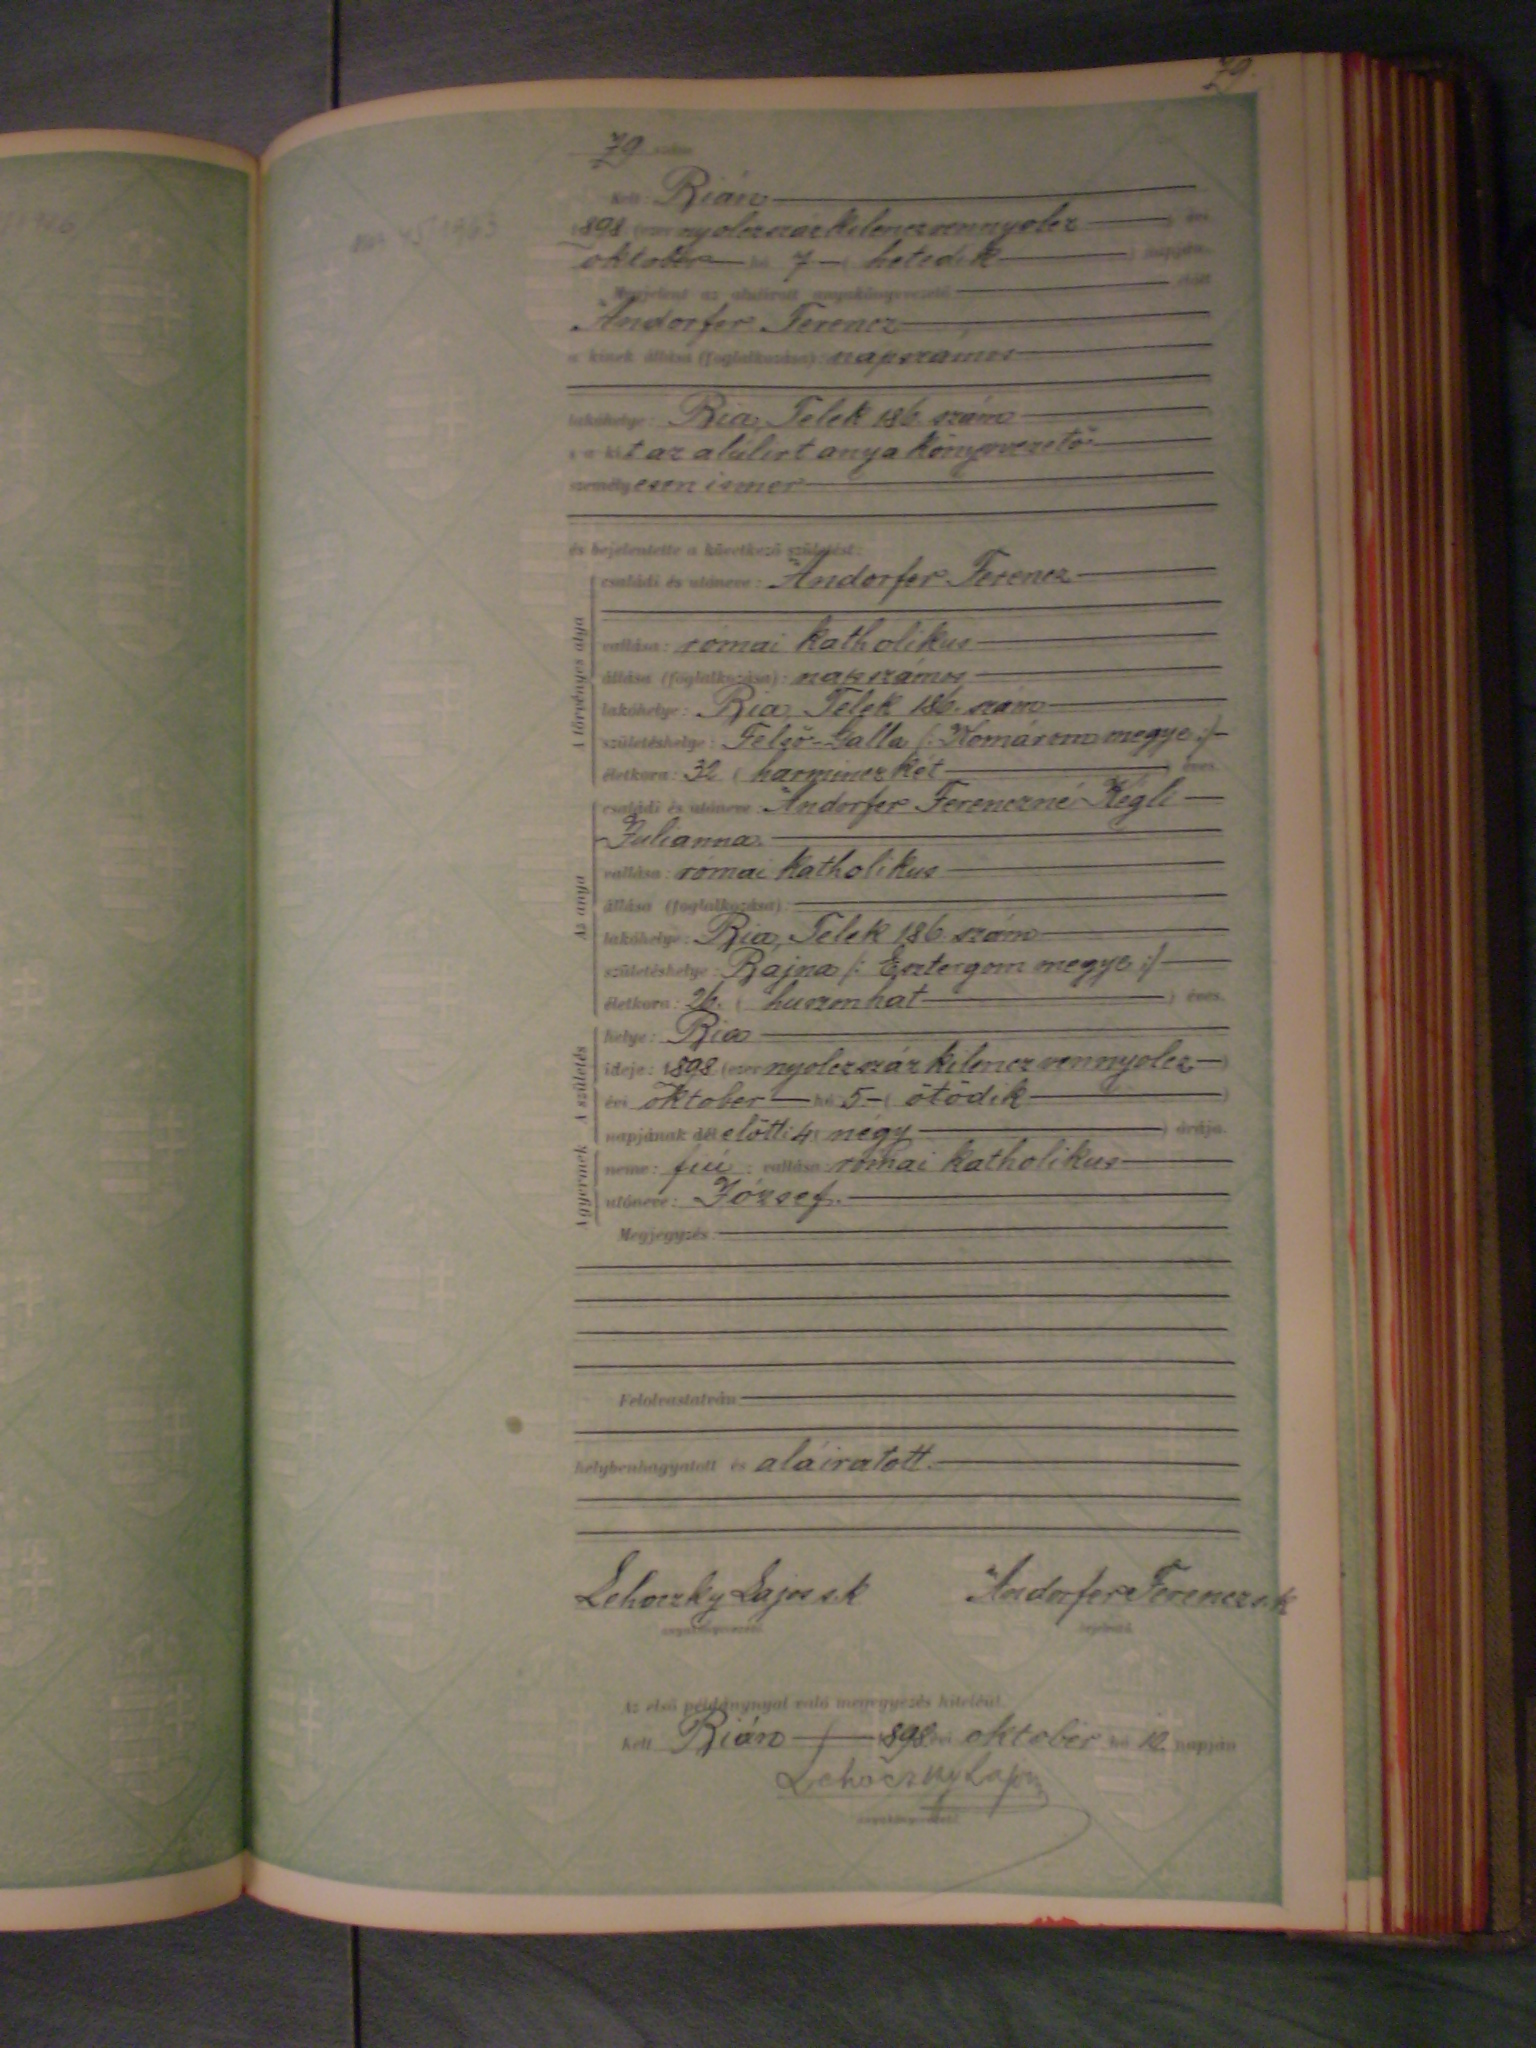 79.
79 szám
Kelt: Bián
1898 (ezernyolczszázkilenczvennyolcz) évi
október hó 7 (hetedik) napján.
Megjelent az alulirott anyakönyvvezető előtt
Andorfer Ferencz
a kinek állása (foglalkozása): napszámos
lakóhelye: Bia, Telek 186. szám
s a kit az alulirt anyakönyvvezető
személyesen ismer
és bejelentette a következő születést:
A törvényes atya
családi és utóneve: Andorfer Ferencz
vallása: római katholikus
állása (foglalkozása): napszámos
lakóhelye: Bia, Telek 186. szám
születéshelye: Felső-Galla (: Komárom megye :)
életkora: 32 (harminczkét) éves.
Az anya
családi és utóneve: Andorfer Ferenczné Kégli
Julianna.
vallása: római katholikus
állása (foglalkozása):
lakóhelye: Bia, Telek 186 szám
születéshelye: Bajna (: Esztergom megye :)
életkora: 26. (huszonhat) éves.
A születés
helye: Bia
ideje: 1898 (ezernyolczszázkilenczvennyolcz)
évi október hó 5 (ötödik)
napjának délelőtti 4 (négy) órája.
A gyermek
neme: fiú; vallása: római katholikus
utóneve: József.
Megjegyzés:
Felolvastatván
helybenhagyatott és aláiratott.
Lehoczky Lajos s.k Andorfer Ferencz s.k
anyakönyvvezető bejelentő
Az első példánynyal való megegyezés hiteléül.
Kelt Bián 1898 évi október hó 12. napján
Lehoczky Lajos
anyakönyvvezető